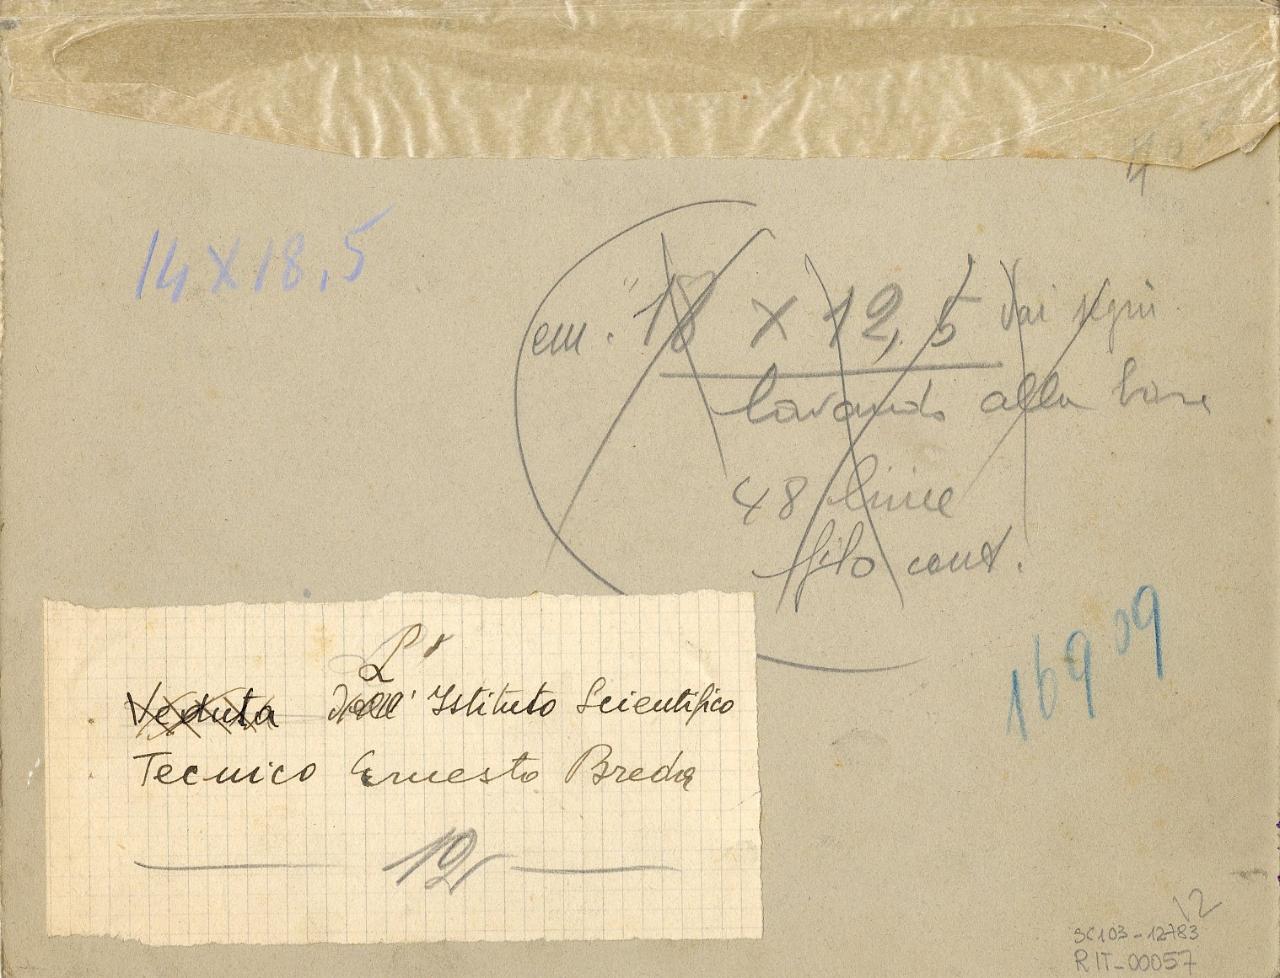 14 X 18,5
cm. 18 x 12,5 dai segni
lavando alla base
48 linee
filo cont.
16909
L'
Veduta dell' Istituto Scientifico
Tecnico Ernesto Breda
12
12
SC103-12783
RIT-00057